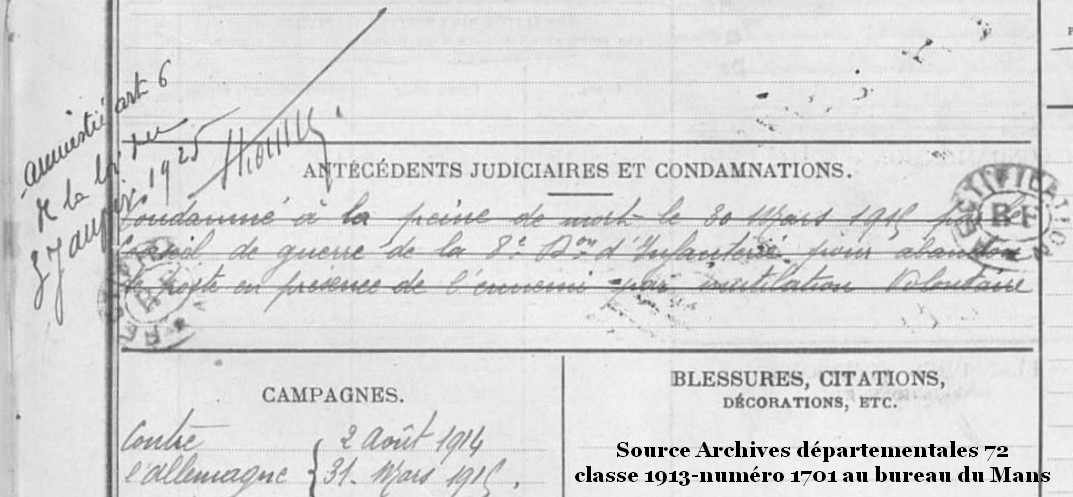 amnistié art 6
de la loi du
3 Janvier 1925
ANTÉCÉDENTS JUDICIAIRES ET CONDAMNATIONS.
Condamné à la peine de mort le 30 Mars 1915 par le
Conseil de guerre de la 8e Don d'Infanterie pour abandon
de poste en présence de l'ennemi par mutilation Volontaire
RECTIFICATION
RF
CAMPAGNES.
Contre
l'allemagne
2 Août 1914
31 Mars 1915.
BLESSURES, CITATIONS,
DÉCORATIONS, ETC.
Source Archives départementales 72
classe 1913-numéro 1701 au bureau du Mans